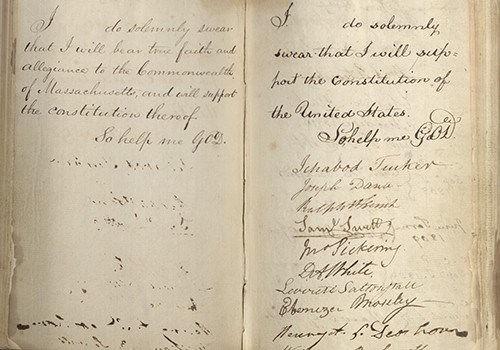 I do solemnly swear
that I will bear true faith and
allegiance to the Commonwealth
of Massachusetts, and will support
the constitution thereof.
So help me GOD.
I do solemnly
swear that I will sup=
port the Constitution of
the United States.
So help me GOD.
Ichabod Tucker
Joseph Dana
Ralph H French
Saml
Jno Pickering
D A White
Leverett Saltonstall
Ebenezer Moseley